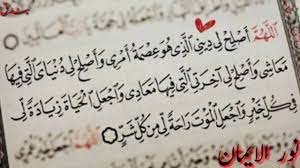 اللَّهُمَّ أَصْلِحْ لِي دِينِيَ الَّذِي هُوَ عِصْمَةُ أَمْرِي وَأَصْلِحْ لِي دُنْيَايَ الَّتِي فِيهَا
مَعَاشِي وَأَصْلِحْ لِي آخِرَتِي الَّتِي فِيهَا مَعَادِي وَاجْعَلِ الْحَيَاةَ زِيَادَةً لِي
فِي كُلِّ خَيْرٍ وَاجْعَلِ الْمَوْتَ رَاحَةً لِي مِنْ كُلِّ شَرٍّ
نور الايمان